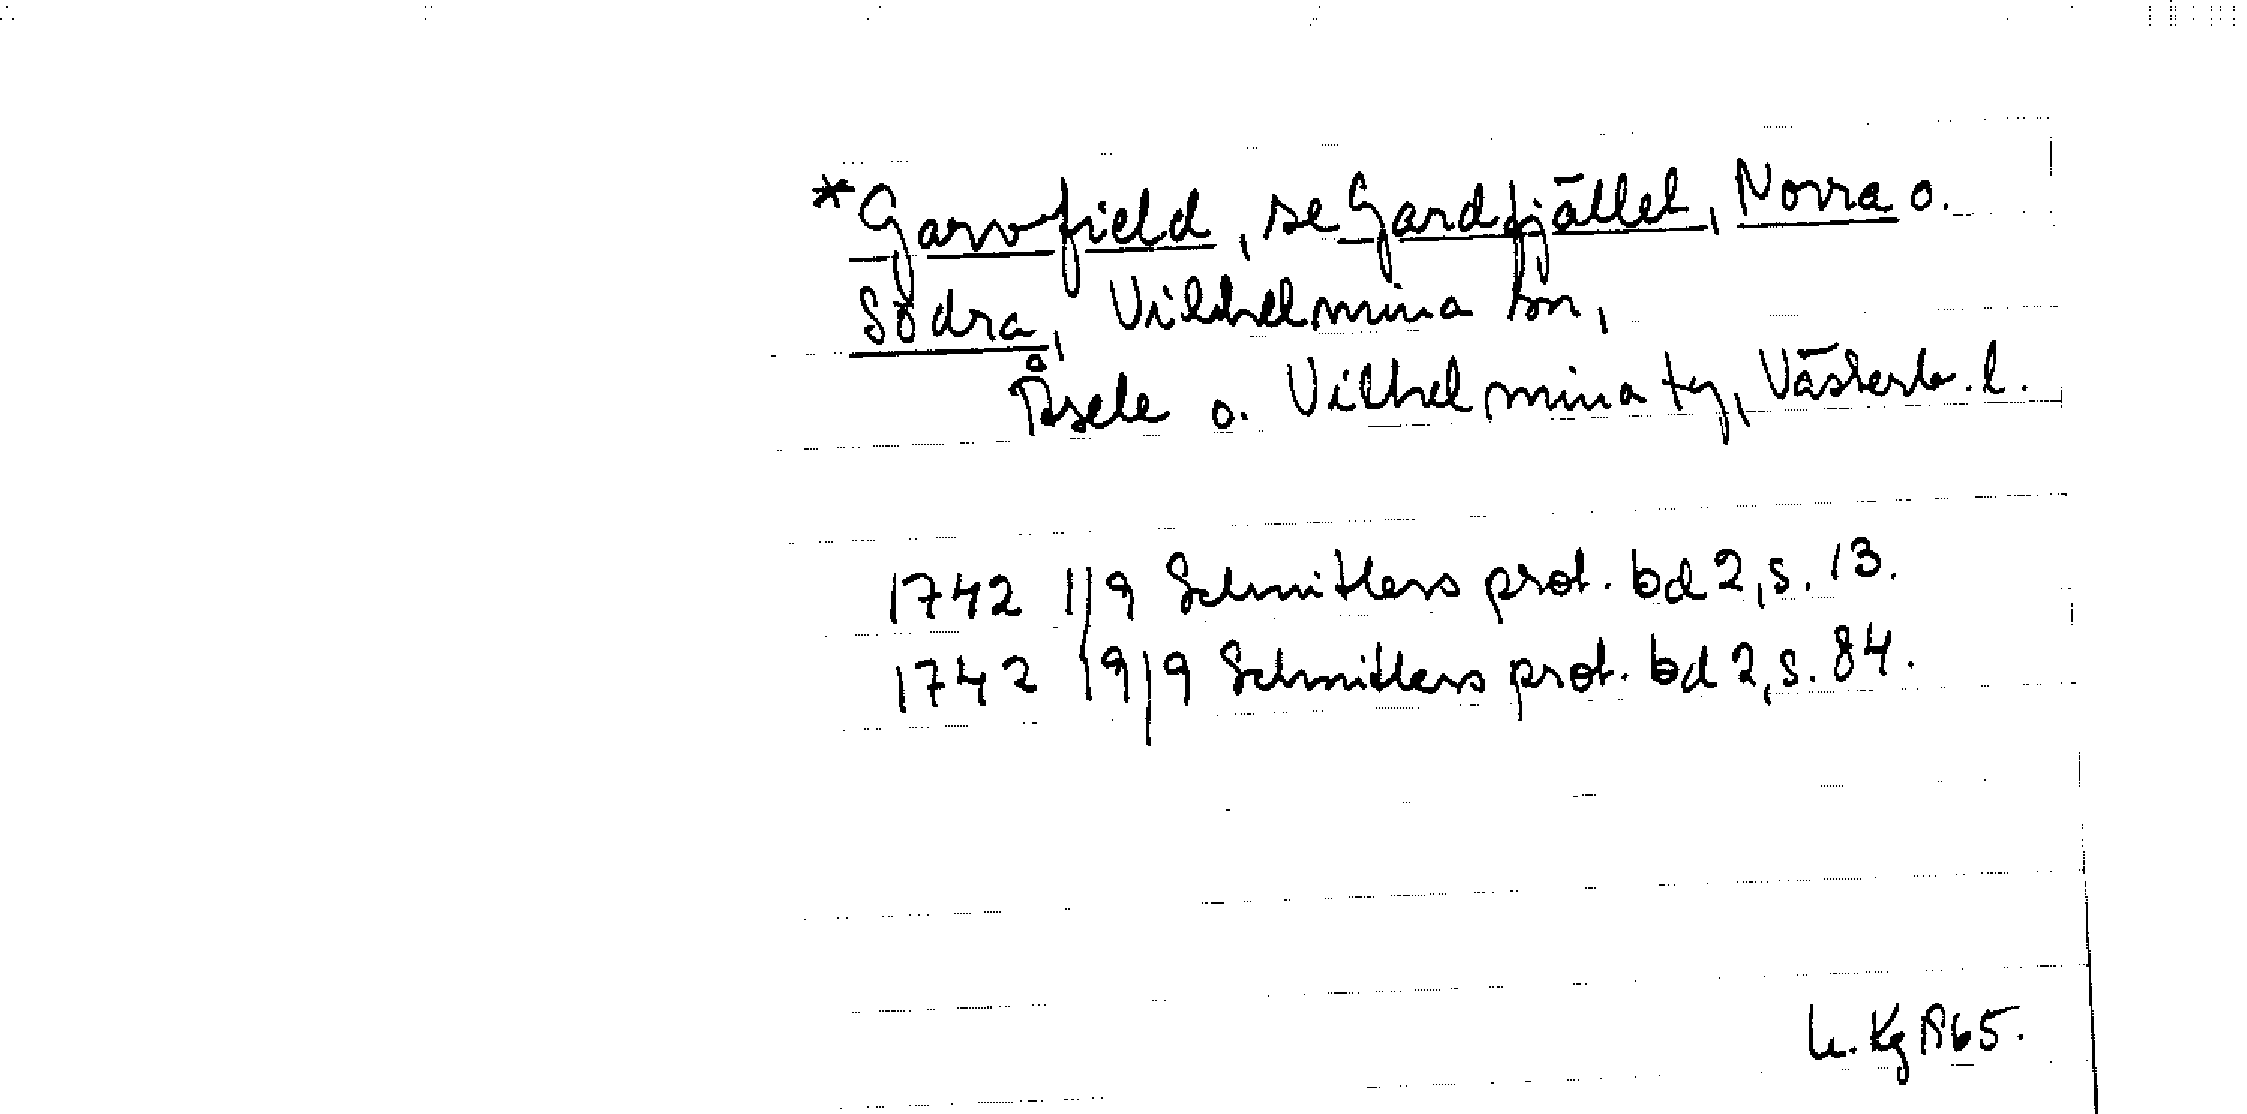 *Garvfield, se Gardfjället, Norra o.
Södra, Vilhelmina sn,
Åsele o. Vilhelmina tg, Västerb. l.
1742 1/9 Schnitlers prot. bd 2, s. 13.
1742 19/9 Schnitlers prot. bd 2, s. 84.